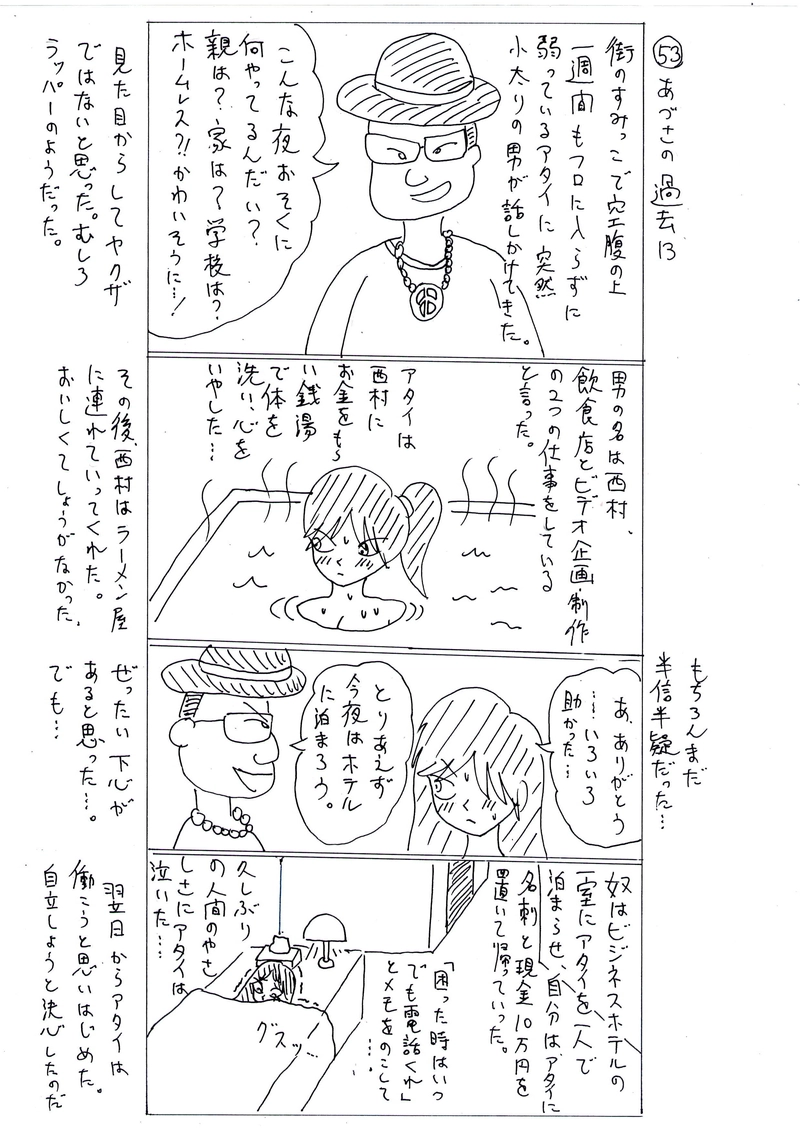 53 あづさの過去13
街のすみっこで空腹の上
一週間もフロに入らずに
弱っているアタイに突然
小太りの男が話しかけてきた。
こんな夜おそくに
何やってるんだい?
親は?家は?学校は?
ホームレス?!かわいそうに…!
見た目からしてヤクザ
ではないと思った。むしろ
ラッパーのようだった。
男の名は西村、
飲食店とビデオ企画・制作
の2つの仕事をしている
と言った。
アタイは
西村に
お金をもら
い銭湯
で体を
洗い、心を
いやした…
その後、西村はラーメン屋
に連れていってくれた。
おいしくてしょうがなかった。
もちろんまだ
半信半疑だった…
あ、ありがとう
…いろいろ
助かった…
とりあえず
今夜はホテル
に泊まろう。
ぜったい下心が
あると思った…。
でも…
奴はビジネスホテルの
一室にアタイを一人で
泊まらせ、自分はアタイに
名刺と現金10万円を
置いて帰っていった。
「困った時はいつ
でも電話くれ」
とメモをのこして
…。
久しぶり
の人間のやさ
しさにアタイは
泣いた…
グスッ…
翌日からアタイは
働こうと思いはじめた。
自立しようと決心したのだ